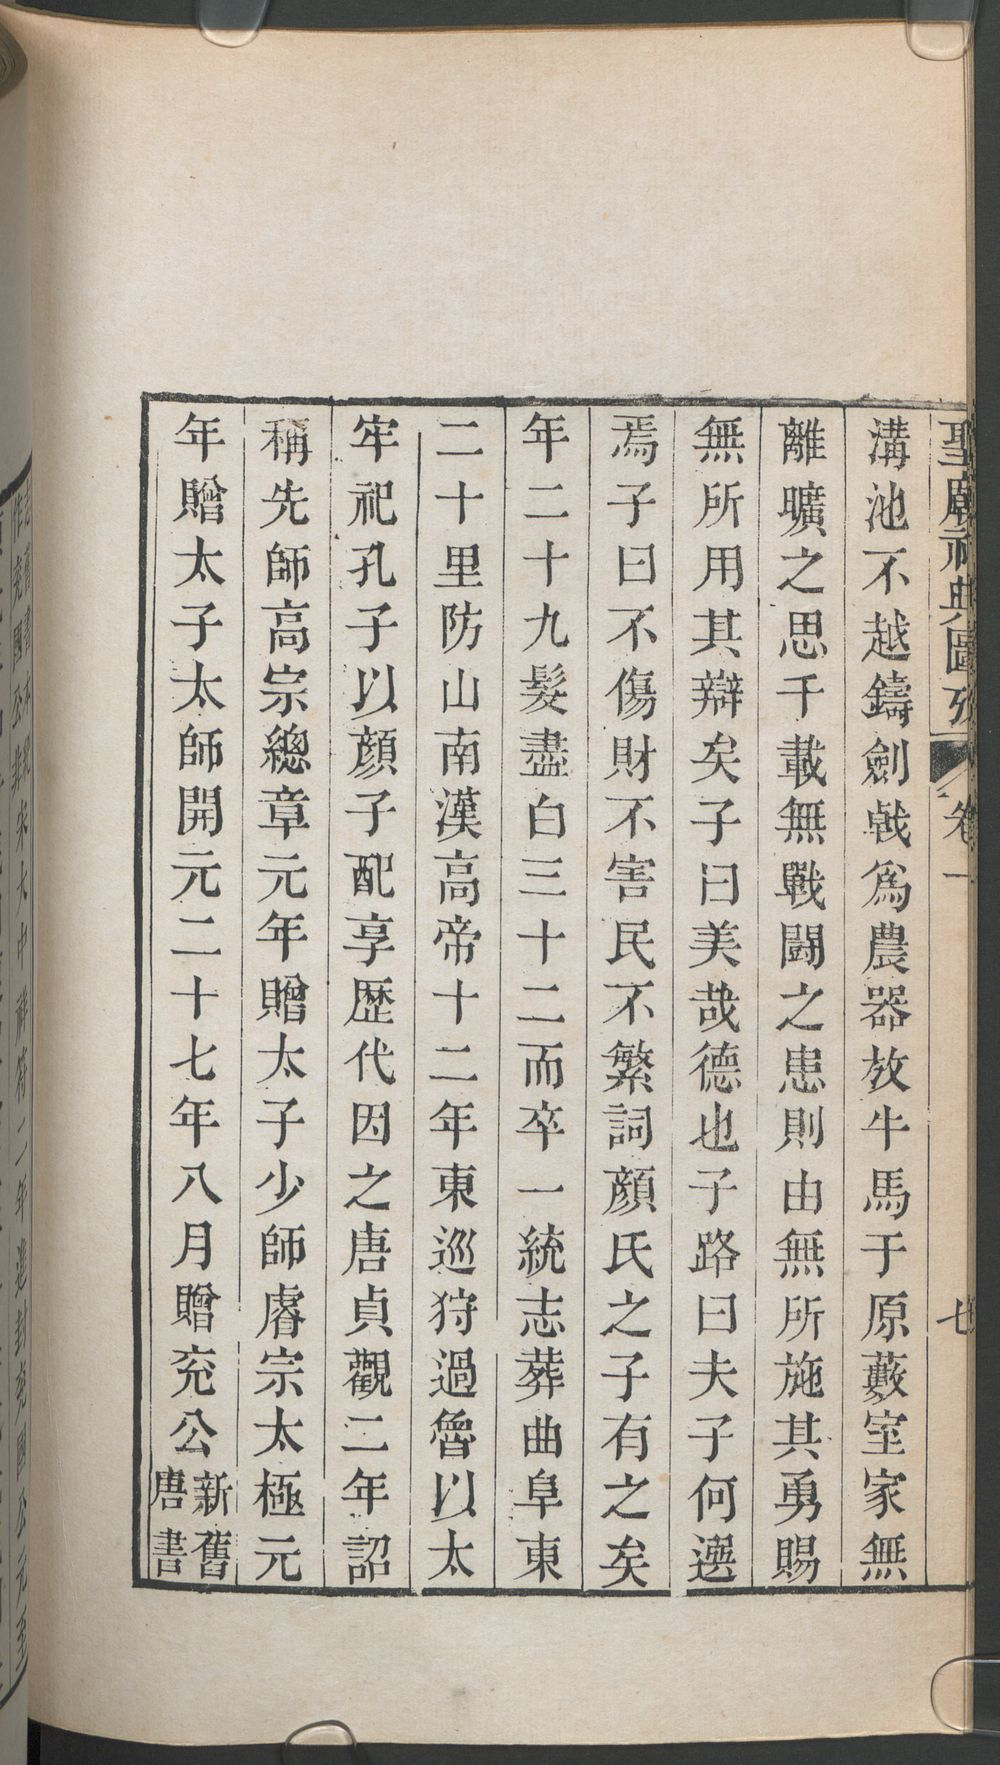 聖廟祀典圖攷 卷一 七
溝池不越鑄劍戟爲農器放牛馬于原藪室家無
離曠之思千載無戰鬪之患則由無所施其勇賜
無所用其辯矣子曰美哉德也子路曰夫子何選
焉子曰不傷財不害民不繁詞顏氏之子有之矣
年二十九髮盡白三十二而卒一統志葬曲阜東
二十里防山南漢高帝十二年東巡狩過魯以太
牢祀孔子以顏子配享歷代因之唐貞觀二年詔
稱先師高宗總章元年贈太子少師睿宗太極元
年贈太子太師開元二十七年八月贈兗公新舊唐書